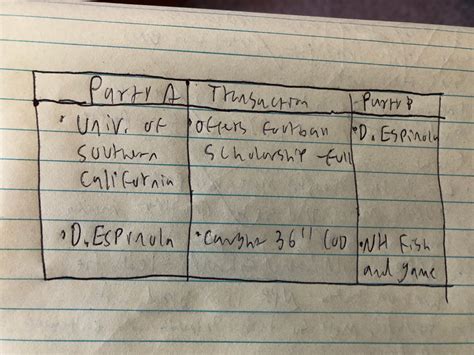 Party A Transaction Party B
• Univ. of • Offers football • D. Espinola
southern scholarship - full
california
• D. Espinola • Caught 36" COD • NH Fish
and game